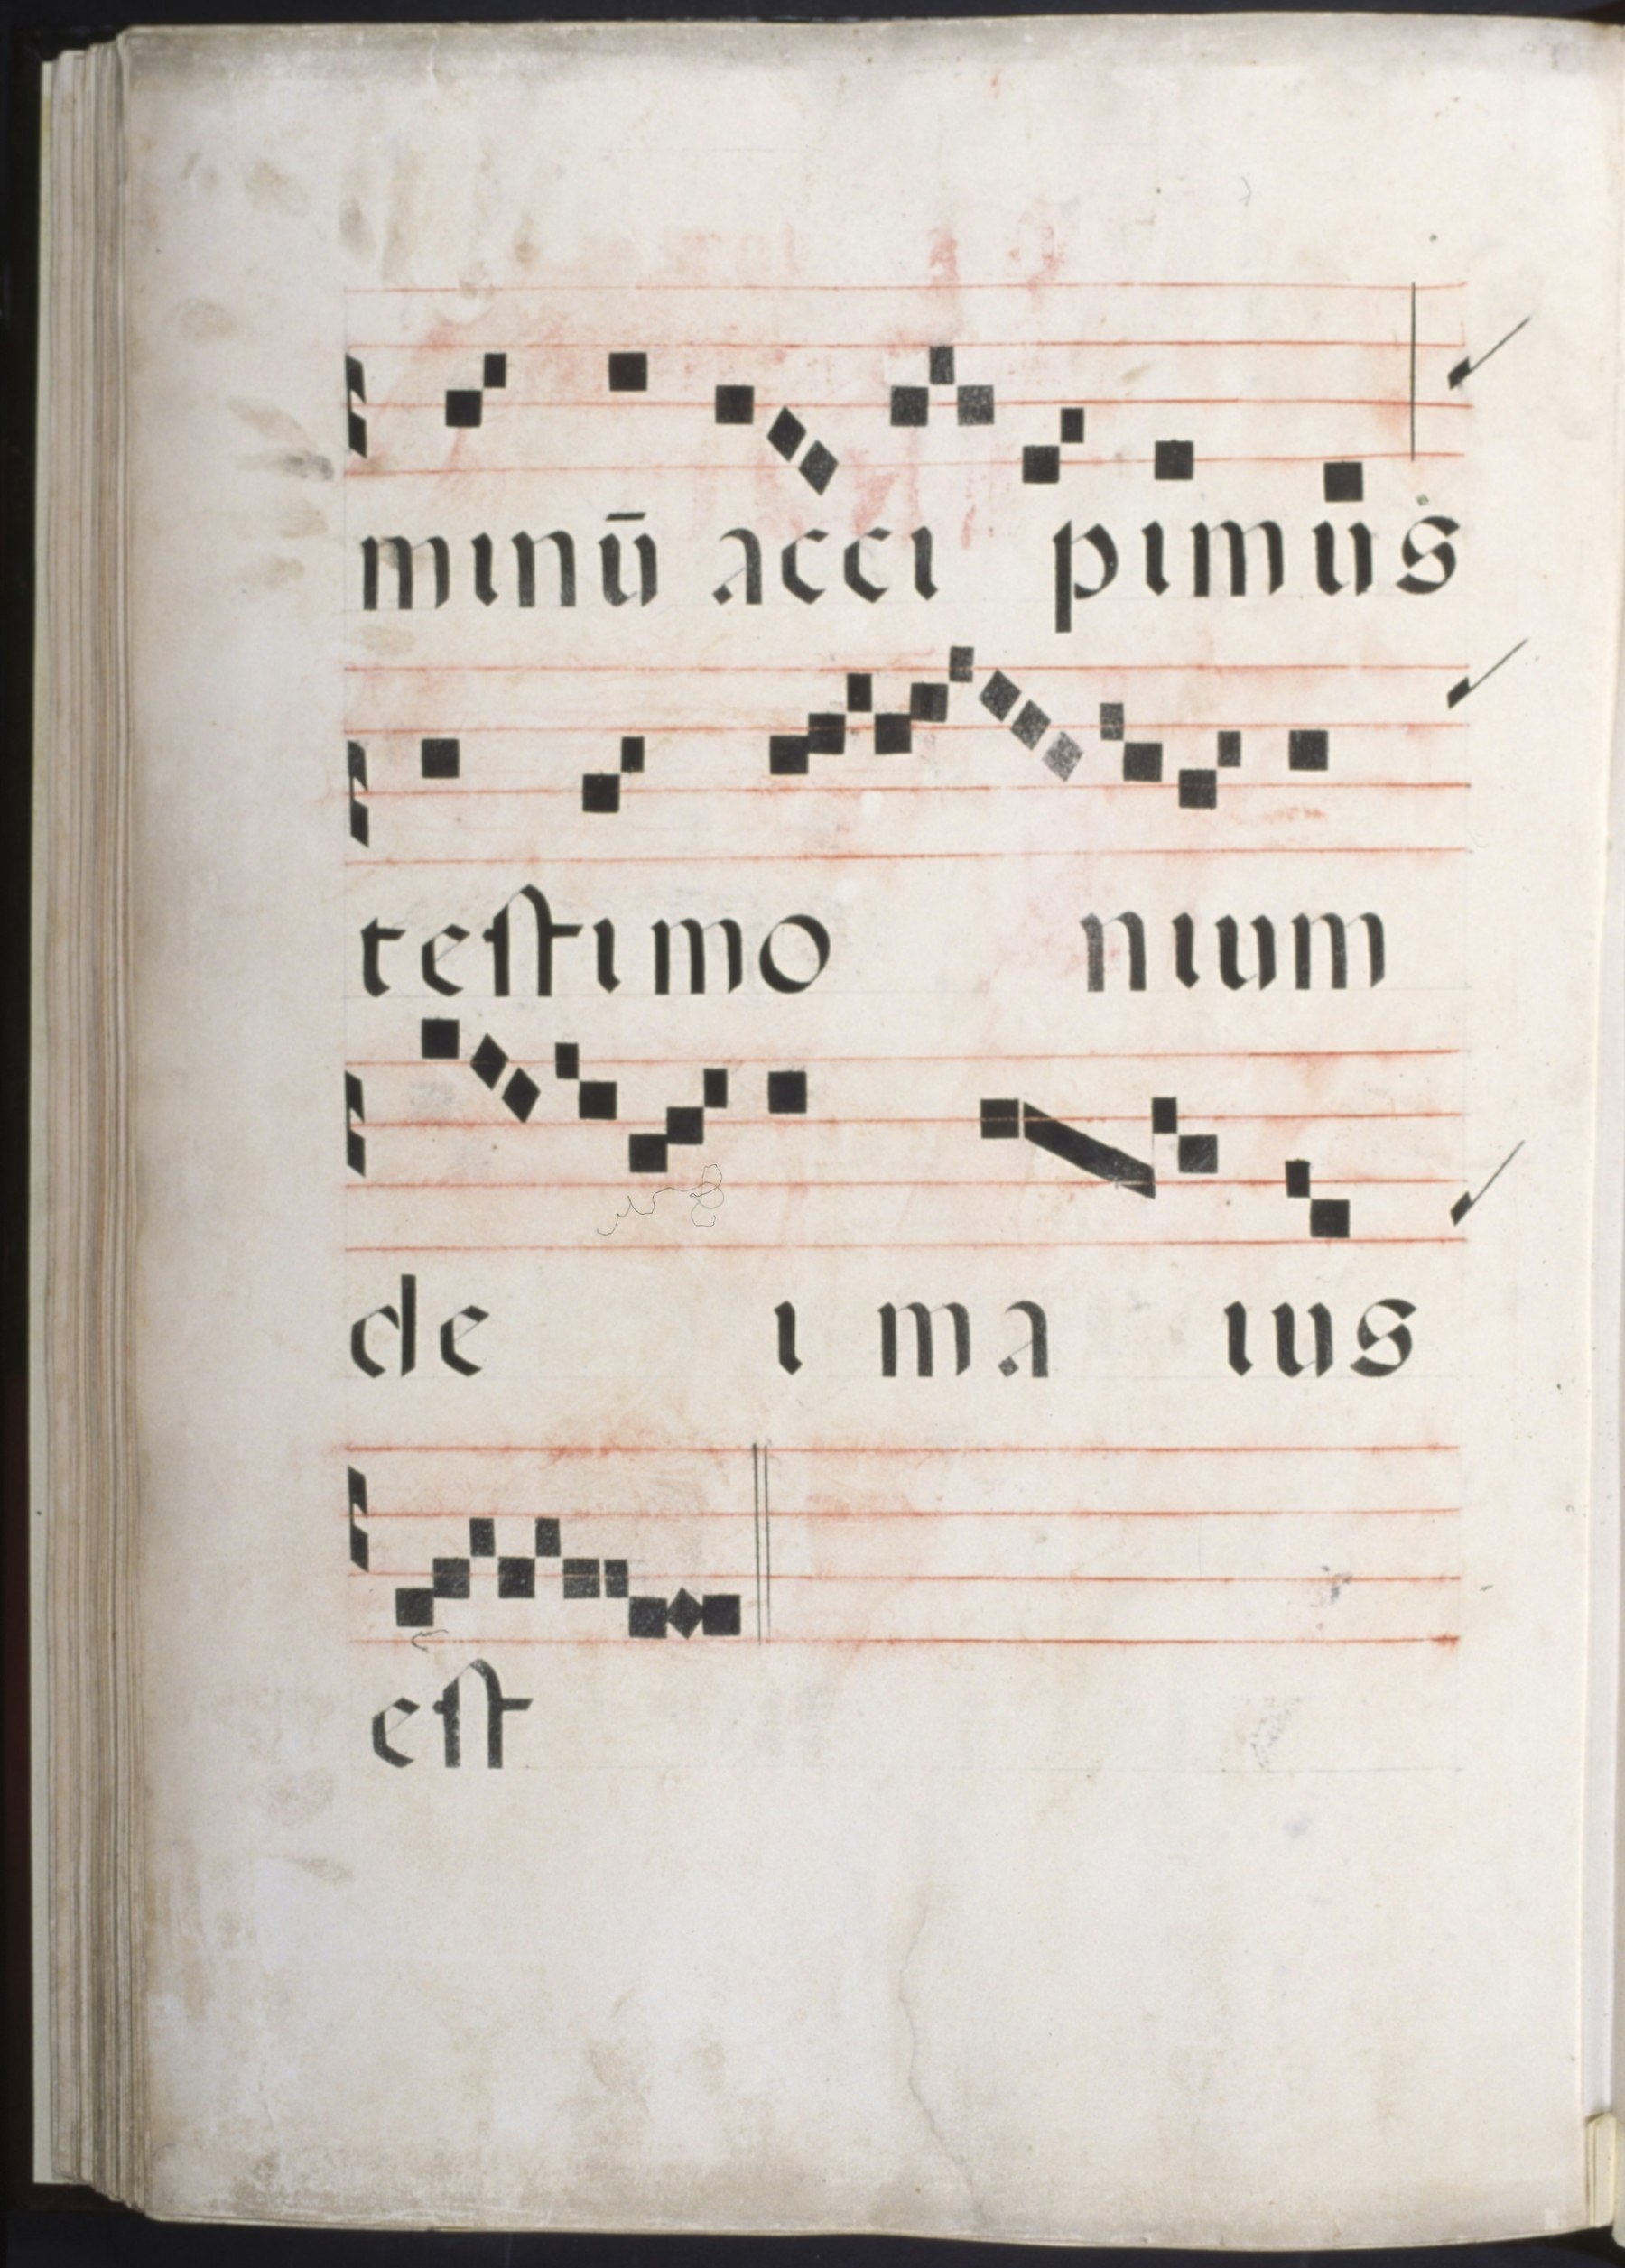 minū acci pimus
testimo nium
de i ma ius
est